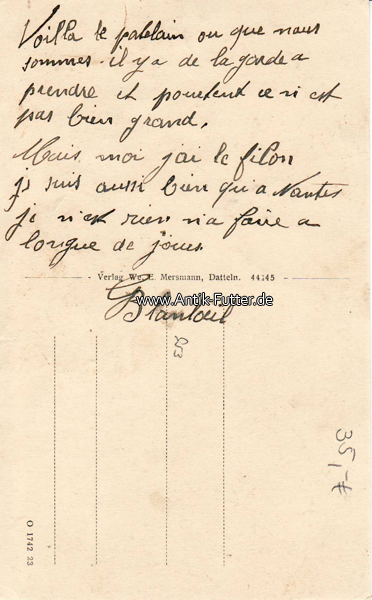 Voilla le patelain ou que nous
sommes. il y a de la garde a
prendre et pourtent ce n est
pas bien grand,
Mais moi j ai le filon
je suis aussi bien qu a Nantes
je n'est rien n a faire a
longue de jour.
Verlag We. E. Mersmann, Datteln. 44145
www.Antik-Futter.de
G Blanloeil
23
35,-
O 1742 23